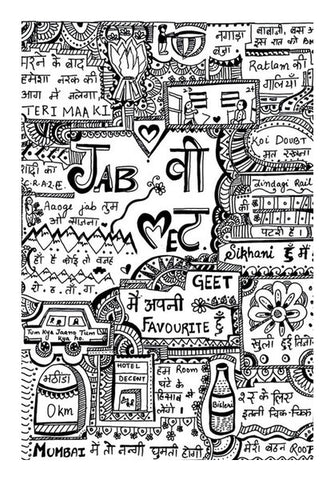 मरने के बाद
हमेशा नरक की
आग में जलेगा
TERI MAA KI
नगाड़ा
बजा
बाबाजी, बस अ
इस रात को B
Ratlam की
गलियाँ
Koi DOUBT
मत रखना
शादी का
C.R.A.Z.E.
JAB वी
MET.
Aaoge jab तुम
ओ साजना
Zindagi Rail
की
पटरी है।
हाँ है कोई तो वजह
Sikhani हूँ मैं
GEET
मैं अपनी
FAVOURITE हूँ
Tum Kya Jaano Tum
Kya ho.
भटिंडा
0km
HOTEL
DECENT
हम Room
घंटे के
हिसाब से
लेंगे।
Bisleri
2रु के लिए
इतनी चिक-चिक
MUMBAI में तो नन्गी घुमती होगी
मेरी बहन ROO